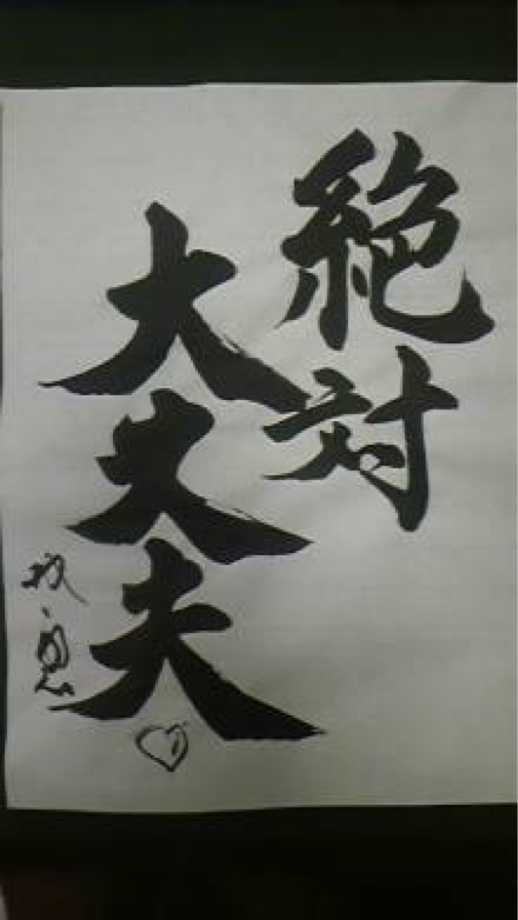 絶対
大丈夫